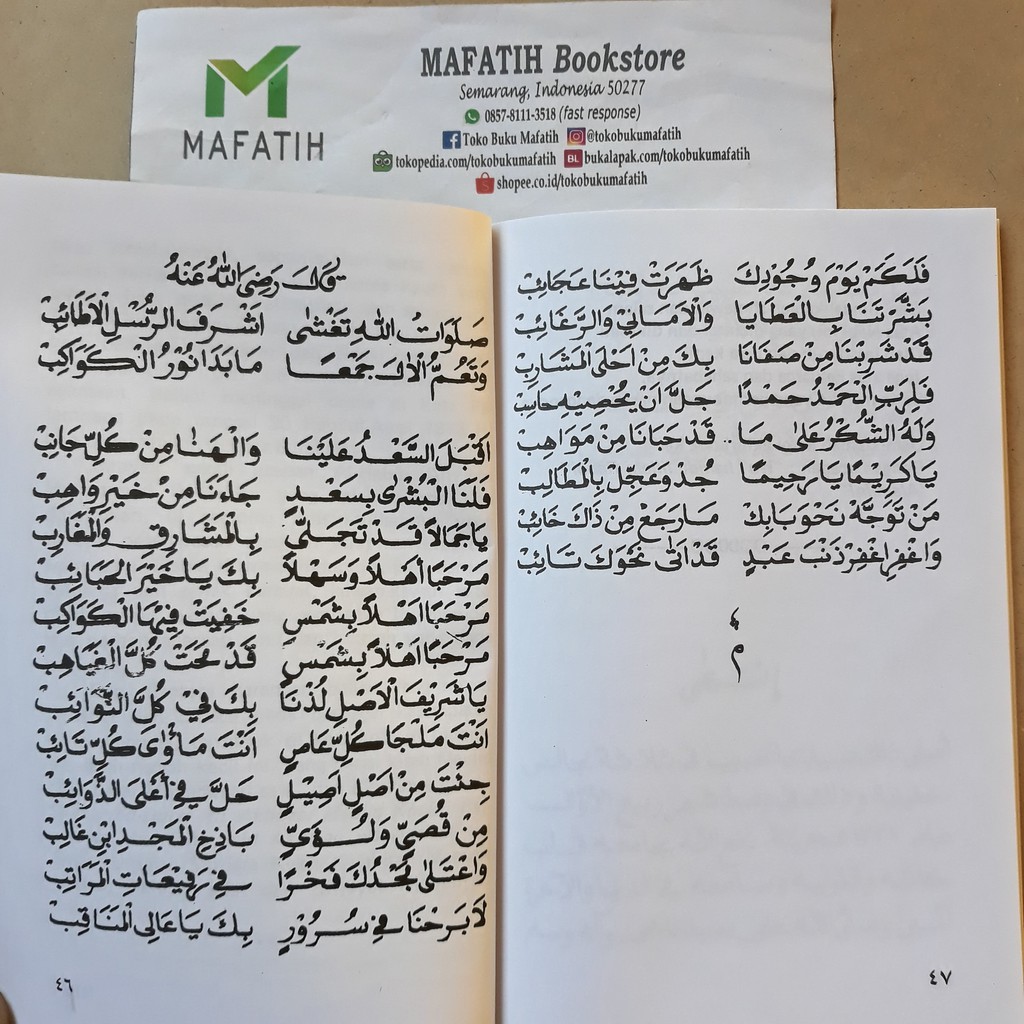 MAFATIH
MAFATIH Bookstore
Semarang, Indonesia 50277
0857-8111-3518 (fast response)
Toko Buku Mafatih @tokobukumafatih
tokopedia.com/tokobukumafatih BL bukalapak.com/tokobukumafatih
shopee.co.id/tokobukumafatih
وَقَالَ رَضِيَ اللهُ عَنْهُ
صَلَوَاتُ اللهِ تَغْشٰى اَشْرَفَ الرُّسْلِ الْاَطَائِبْ
وَتَعُمُّ الْاٰلَ جَمْعًا مَا بَدَا نُوْرُ الْكَوَاكِبْ
اَقْبَلَ السَّعْدُ عَلَيْنَا وَالْهَنَا مِنْ كُلِّ جَانِبْ
فَلَنَا الْبُشْرٰى بِسَعْدٍ جَاءَنَا مِنْ خَيْرِ وَاهِبْ
يَا جَمَالًا قَدْ تَجَلّٰى بِالْمَشَارِقِ وَالْمَغَارِبْ
مَرْحَبًا اَهْلًا وَسَهْلًا بِكَ يَا خَيْرَ الْحَبَائِبْ
مَرْحَبًا اَهْلًا بِشَمْسٍ خَفِيَتْ فِيْهَا الْكَوَاكِبْ
مَرْحَبًا اَهْلًا بِشَمْسٍ قَدْ مَحَتْ كُلَّ الْغَيَاهِبْ
يَا شَرِيْفَ الْاَصْلِ لُذْنَا بِكَ فِيْ كُلِّ النَّوَائِبْ
اَنْتَ مَلْجَا كُلِّ عَاصٍ اَنْتَ مَأْوٰى كُلِّ تَائِبْ
جِئْتَ مِنْ اَصْلٍ اَصِيْلٍ حَلَّ فِيْ أَعْلَى الذَّوَائِبْ
مِنْ قُصَيٍّ وَلُؤَيٍّ بَاذِخِ الْمَجْدِ ابْنِ غَالِبْ
وَاعْتَلٰى مَجْدُكَ فَخْرًا فِيْ رَفِيْعَاتِ الْمَرَاتِبْ
لَا بَرِحْنَا فِيْ سُرُوْرٍ بِكَ يَا عَالِى الْمَنَاقِبْ
٤٦
فَلَكَمْ يَوْمَ وُجُوْدِكَ ظَهَرَتْ فِيْنَا عَجَائِبْ
بَشَّرَتْنَا بِالْعَطَايَا وَالْاَمَانِيْ وَالرَّغَائِبْ
قَدْ شَرِبْنَا مِنْ صَفَانَا بِكَ مِنْ اَحْلَى الْمَشَارِبْ
فَلِرَبِّ الْحَمْدُ حَمْدًا جَلَّ اَنْ يُحْصِيْهِ حَاسِبْ
وَلَهُ الشُّكْرُ عَلٰى مَا .. قَدْ حَبَانَا مِنْ مَوَاهِبْ
يَا كَرِيْمًا يَا رَحِيْمًا جُدْ وَعَجِّلْ بِالْمَطَالِبْ
مَنْ تَوَجَّهْ نَحْوَ بَابِكْ مَا رَجَعْ مِنْ ذَاكَ خَائِبْ
وَاغْفِرِ اغْفِرْ ذَنْبَ عَبْدٍ قَدْ اَتٰى نَحْوَكَ تَائِبْ
م
٤٧